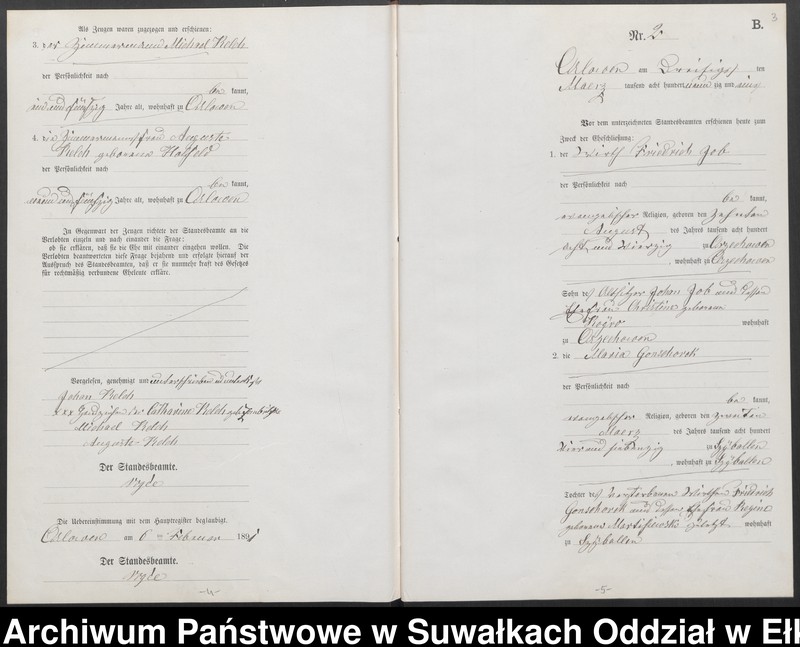 Als Zeugen waren zugezogen und erschienen:
3. der Zimmermann Michael Kelch
der Persönlichkeit nach
be kannt,
ein und fünfzig Jahre alt, wohnhaft zu Orlowen
4. die Zimmermannsfrau Auguste
Kelch geborene
der Persönlichkeit nach
be kannt,
neun und fünfzig Jahre alt, wohnhaft zu Orlowen
In Gegenwart der Zeugen richtete der Standesbeamte an die
Verlobten einzeln und nach einander die Frage:
ob sie erklären, daß sie die Ehe mit einander eingehen wollen. Die
Verlobten beantworteten diese Frage bejahend und erfolgte hierauf der
Ausspruch des Standesbeamten, daß er sie nunmehr kraft des Gesetzes
für rechtmäßig verbundene Eheleute erkläre.
Vorgelesen, genehmigt und unterschrieben
Johan Kelch
xxx Handzeichen der Catharine Kelch
Michael Kelch
Auguste Kelch
Der Standesbeamte.
Nyde
Die Uebereinstimmung mit dem Hauptregister beglaubigt.
Orlowen am 6ten Februar 1891
Der Standesbeamte.
Nyde
-4-
3
B.
Nr. 2
Orlowen am Dreißigst den
Maerz tausend acht hundert neunzig und eins
Vor dem unterzeichneten Standesbeamten erschienen heute zum
Zweck der Eheschließung:
1. der Wirth Friedrich Job
der Persönlichkeit nach
be kannt,
evangelischer Religion, geboren den zehnten
August des Jahres tausend acht hundert
acht und vierzig zu Orzechowen
, wohnhaft zu Orzechowen
Sohn des Altsitzer Johan Job und dessen
Ehefrau Christine geborene
wohnhaft
zu Orzechowen
2. die Maria Gonschorek
der Persönlichkeit nach
be kannt,
evangelischer Religion, geboren den zweiten
Maerz des Jahres tausend acht hundert
vier und siebenzig zu Szyballen
, wohnhaft zu Szyballen
Tochter des verstorbenen Wirthen Friedrich
Gonschorek und dessen Ehefrau Regine
geborene zuletzt wohnhaft
zu Szyballen
-5-
Archiwum Państwowe w Suwałkach Oddział w Ełk